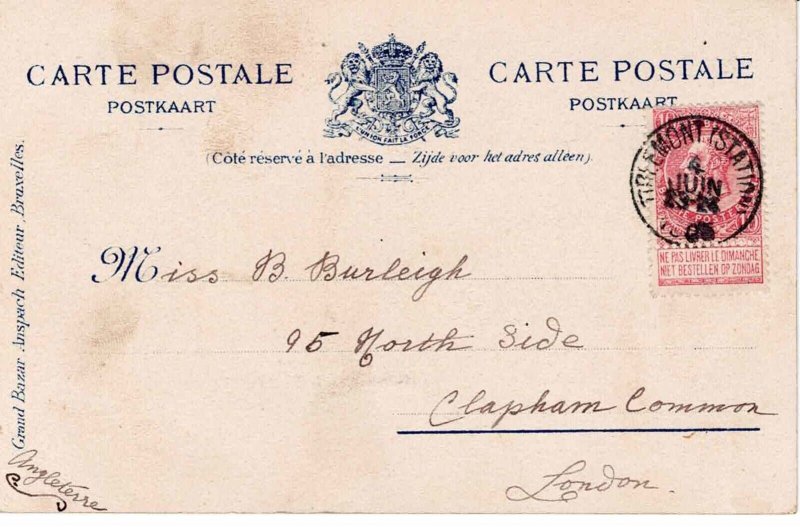 CARTE POSTALE
POSTKAART
L'UNION FAIT LA FORCE
CARTE POSTALE
POSTKAART
(Côté réservé à l'adresse _ Zijde voor het adres alleen).
TIRLEMONT (STATION)
4
JUIN
NE PAS LIVRER LE DIMANCHE
NIET BESTELLEN OP ZONDAG
Grand Bazar Anspach Editeur, Bruxelles.
Miss B. Burleigh
95 North Side
Clapham Common
London.
Angleterre